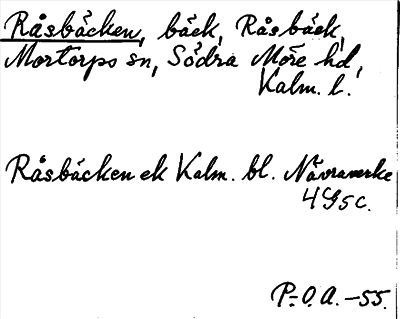 Råsbäcken, bäck, Råsbäck,
Mortorps sn, Södra Möre hd,
Kalm. l.
Råsbäcken ek Kalm. bl. Nävraverke
4G5c.
P.-O.A. -55.